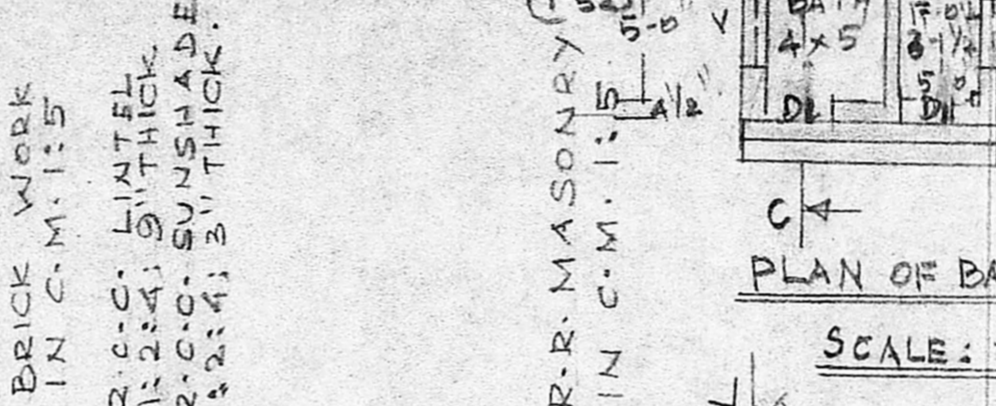 BRICK WORK
IN C.M. 1:5
R.C.C. LINTEL
1:2:4; 9" THICK
R.C.C. SUNSHADE
1:2:4; 3" THICK.
R.R. MASONRY
IN C.M. 1:5
5-0
Y
BATH
4×5
D1
D1
C
PLAN OF BA
SCALE: